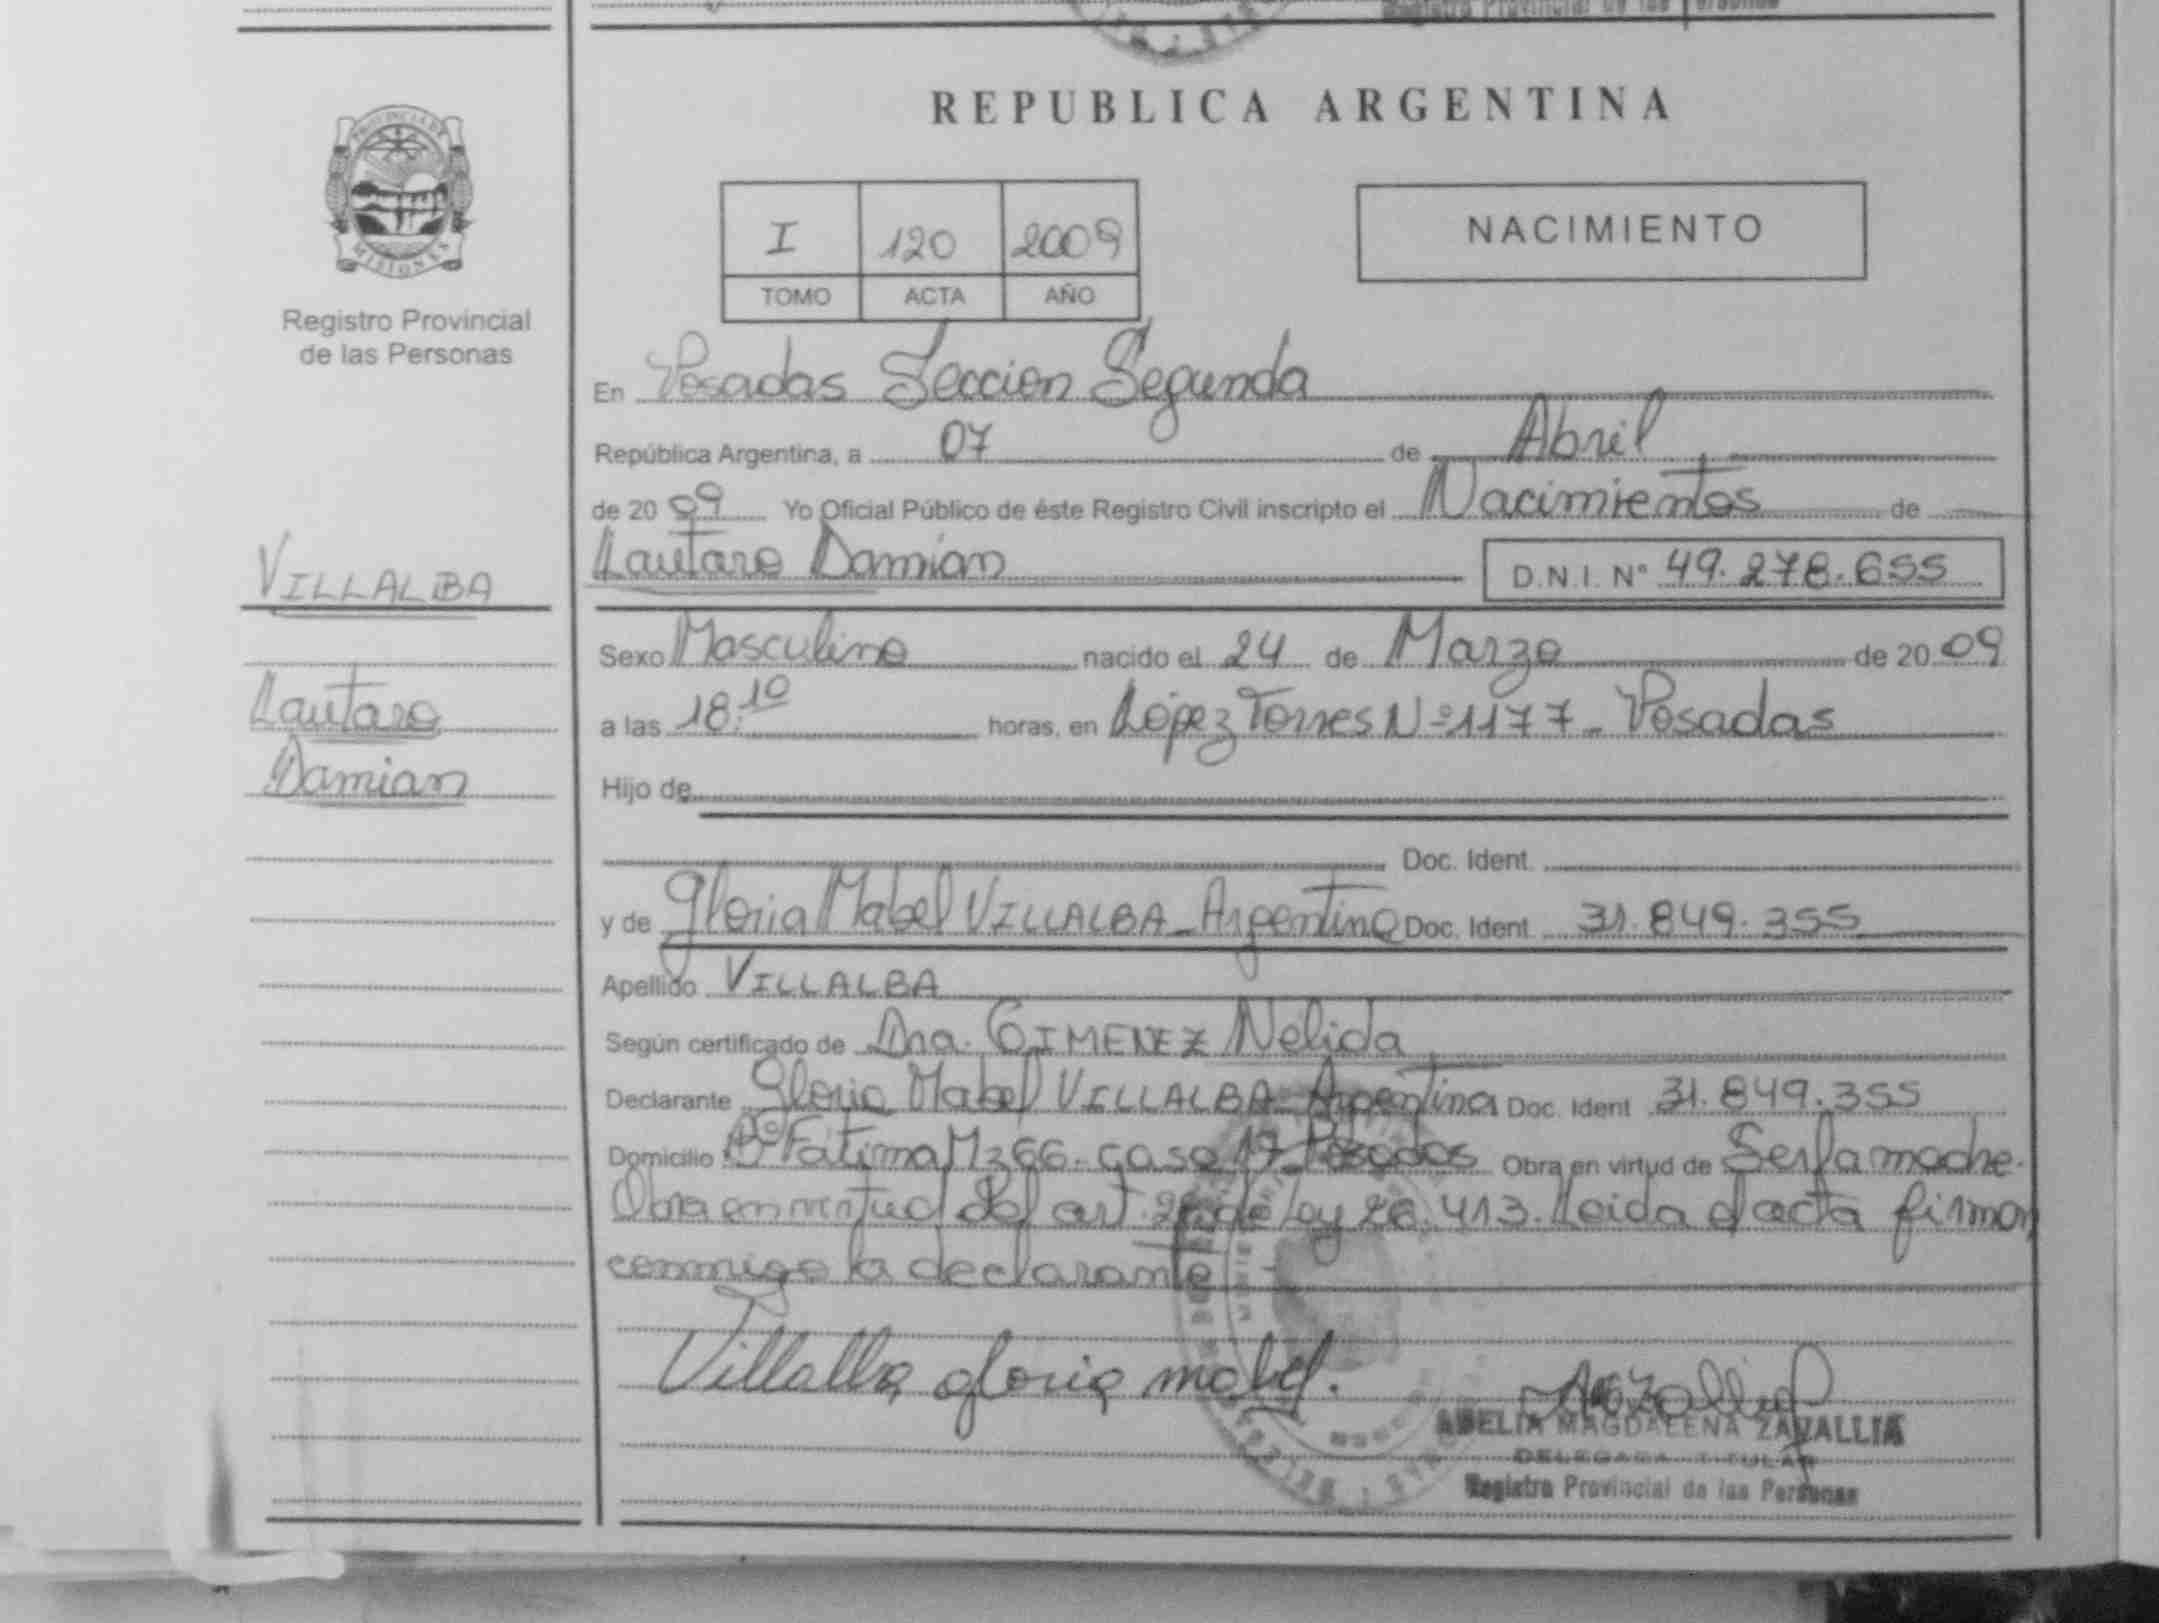 Registro Provincial de las Personas
REPUBLICA ARGENTINA
PROVINCIA DE
MISIONES
Registro Provincial
de las Personas
I 120 2009
TOMO ACTA AÑO
NACIMIENTO
En Posadas Seccion Segunda
República Argentina, a 07 de Abril
de 2009 Yo Oficial Público de éste Registro Civil inscripto el Nacimientos de
Lautaro Damian D.N.I. N° 49.278.655
VILLALBA
Lautaro
Damian
Sexo Masculino nacido el 24 de Marzo de 2009
a las 18:10 horas, en López Torres Nº 1177 - Posadas
Hijo de
Doc. Ident.
y de Gloria Mabel VILLALBA - Argentina Doc. Ident. 31.849.355
Apellido VILLALBA
Según certificado de Dra. GIMENEZ Nelida
Declarante Gloria Mabel VILLALBA - Argentina Doc. Ident. 31.849.355
Domicilio Bº Fatima Mz 66 - casa 17 - Posadas Obra en virtud de Ser la madre.
Obra en virtud del art. de ley 26.413. Leida el acta firman
conmigo la declarante
Villalba gloria mabel.
ADELIA MAGDALENA ZAVALLIA
DELEGADA TITULAR
Registro Provincial de las Personas